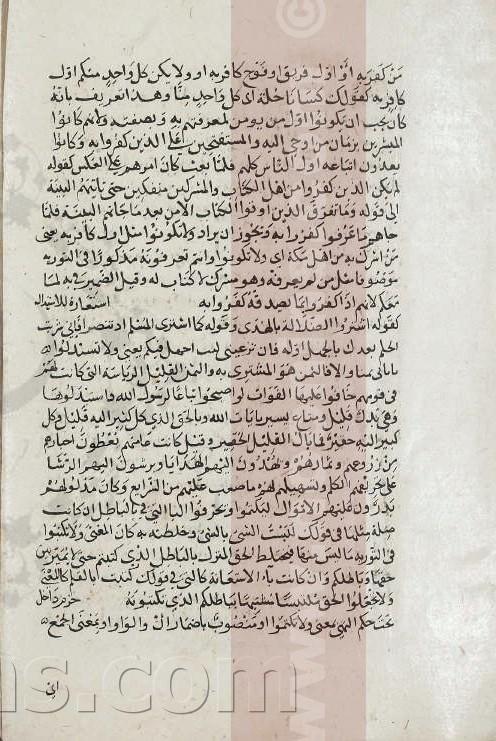 من كفر به أو أول فريق أو فوج كافر به أو ولا يكن كل واحد منكم أول
كافر به كقولك كسانا حلة اى كل واحد منا وهذا تعريض بانه
كان يجب ان يكونوا اول من يومن به لمعرفتهم به وبصفته ولانهم كانوا
المبشرين بزمان من اوحى اليه والمستفتحين على الذين كفروا به وكانوا
يعدون اتباعه اول الناس كلهم فلما بعث كان امرهم على العكس كقوله
لم يكن الذين كفروا من اهل الكتاب والمشركين منفكين حتى تاتيهم البينة
الى قوله وما تفرق الذين اوتوا الكتاب الا من بعد ما جاتهم البينة فلما
جاهم ما عرفوا كفروا به ويجوز ان يراد ولا تكونوا مثل اول كافر به يعنى
من اشرك به من اهل مكة اى ولا تكونوا وانتم تعرفونه مذكورا فى التورية
موصوفا مثل من لم يعرفه وهو مشرك لا كتاب له وقيل الضمير فى به لما
معكم لانهم اذا كفروا بما يصدقه فقد كفروا به استعارة للاستبدال
كقوله اشتروا الضلالة بالهدى وقوله كما اشترى المسلم اذ تنصرا فانى شريت
الحلم بعدك بالجهل اوله فان تزعمينى كنت اجهل فيكم يعنى ولا تستبدلوا
باياتى ثمنا والا فالثمن هو المشترى به والثمن القليل الرياسة التى كانت لهم
فى قومهم خافوا عليها الفوات لو اصبحوا اتباعا لرسول الله فاستبدلوها
وهى بدل قليل ومتاع يسير بايات الله وبالحق الذى كل كثير اليه قليل وكل
كبير اليه حقير فما بال القليل الحقير وقيل كانت عامتهم يعطون احبارهم
من زروعهم وثمارهم ويهدون اليهم الهدايا ويرشونهم الرشا
على تحريفهم الكلم وتسهيلهم لهم ما صعب عليهم من الشرايع وكان ملوكهم
يدرون عليهم الاموال ليكتموا او يحرفوا البا التى فى بالباطل ان كانت
صلة مثلها فى قولك لبست الشى بالشى وخلطته به كان المعنى ولا تكتبوا
فى التورية ما ليس منها فيختلط الحق المنزل بالباطل الذى كتبتم حتى لا يميز بين
حقها وباطلكم وان كانت باء الاستعانة كالتى فى قولك كتبت بالقلم كان المعنى
ولا تجعلوا الحق ملتبسا مشتبها بباطلكم الذى تكتبونه جزم داخل
تحت حكم النهى بمعنى ولا تكتموا او منصوب باضمار ان والواو بمعنى الجمع
اى
ns.com